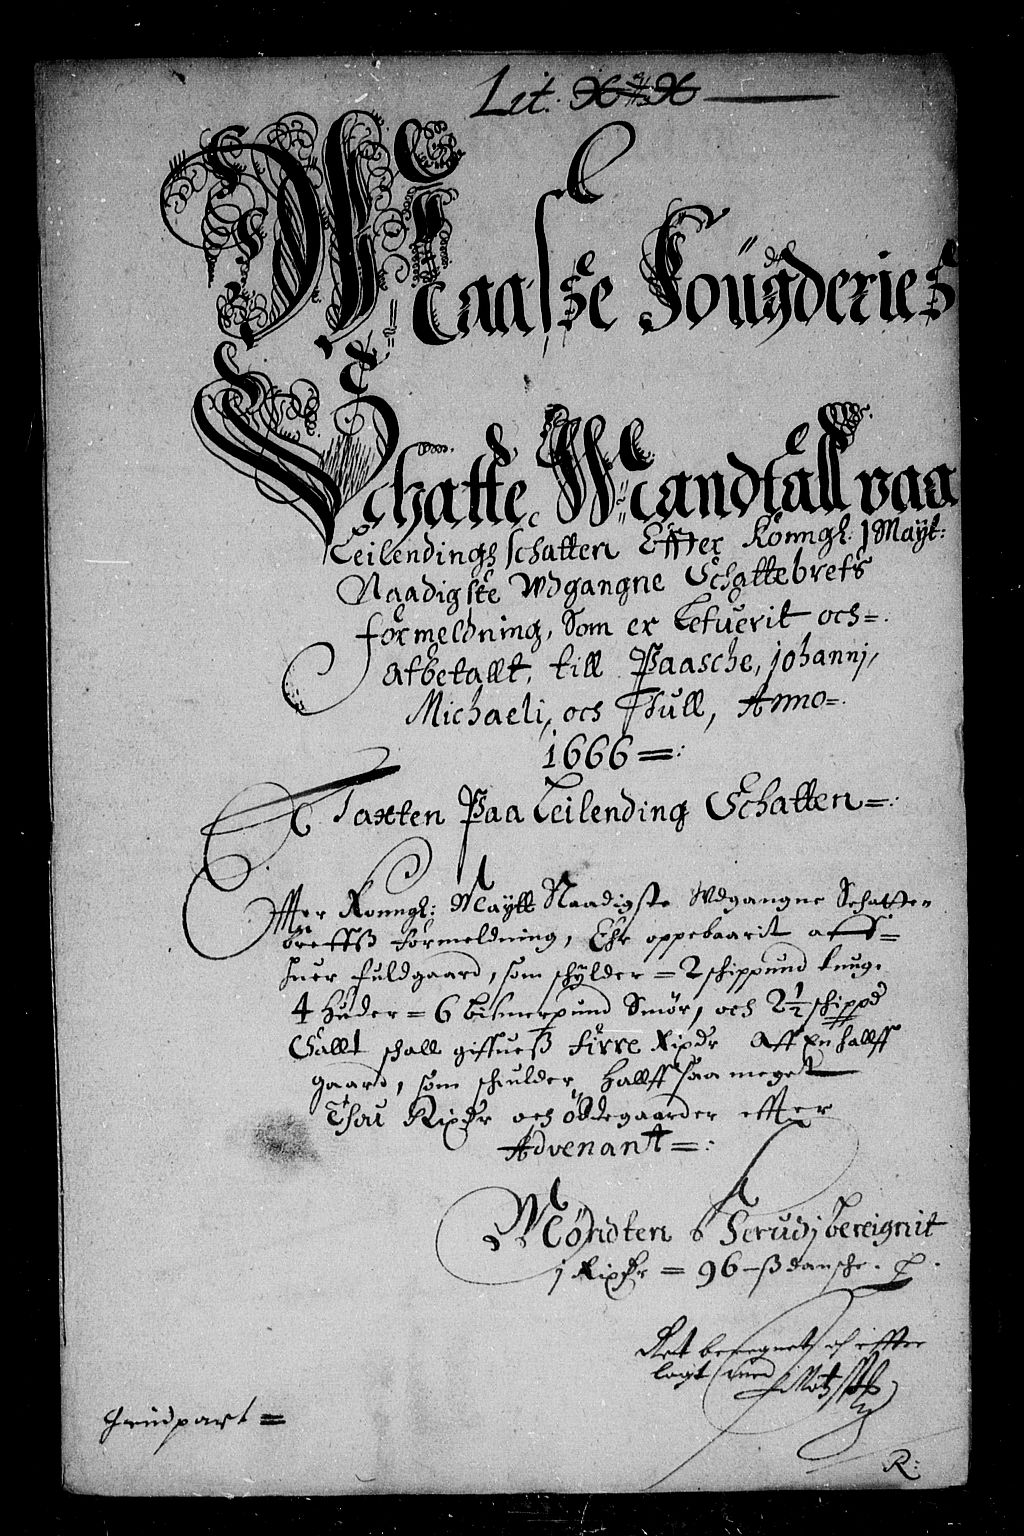 Lit:
Maasse Fougderies
Schatte Mandtall paa
Leilendings schatten Effter Konngl: Maÿt:
Naadigste Wdgangne Schattebrefs
formeldning, Som er Lefuerit och=
afbetallt, till Paasche, johannj,
Michaeli, och Jull, Anno=
1666=:
Taxten Paa Leilending Schatten=:
Effter Konngl: Maÿtt Naadigste Wdgangne Schatte
breffß formeldning, Ehr oppebaarit aff=
huer fuldgaard, som schÿlder=2 schippund
4 huder=6 bismerpund Smör, och 2½ schippd
Sallt schall giffueß firre Rixdr Aff En hallff
gaard, som schulder hallff saa meget
Thou Rixdr och ödegaarder effter
Advenant=:
Mÿndten
j Rixdr = 96 ß dansche.
Ret effter
lagt
R: